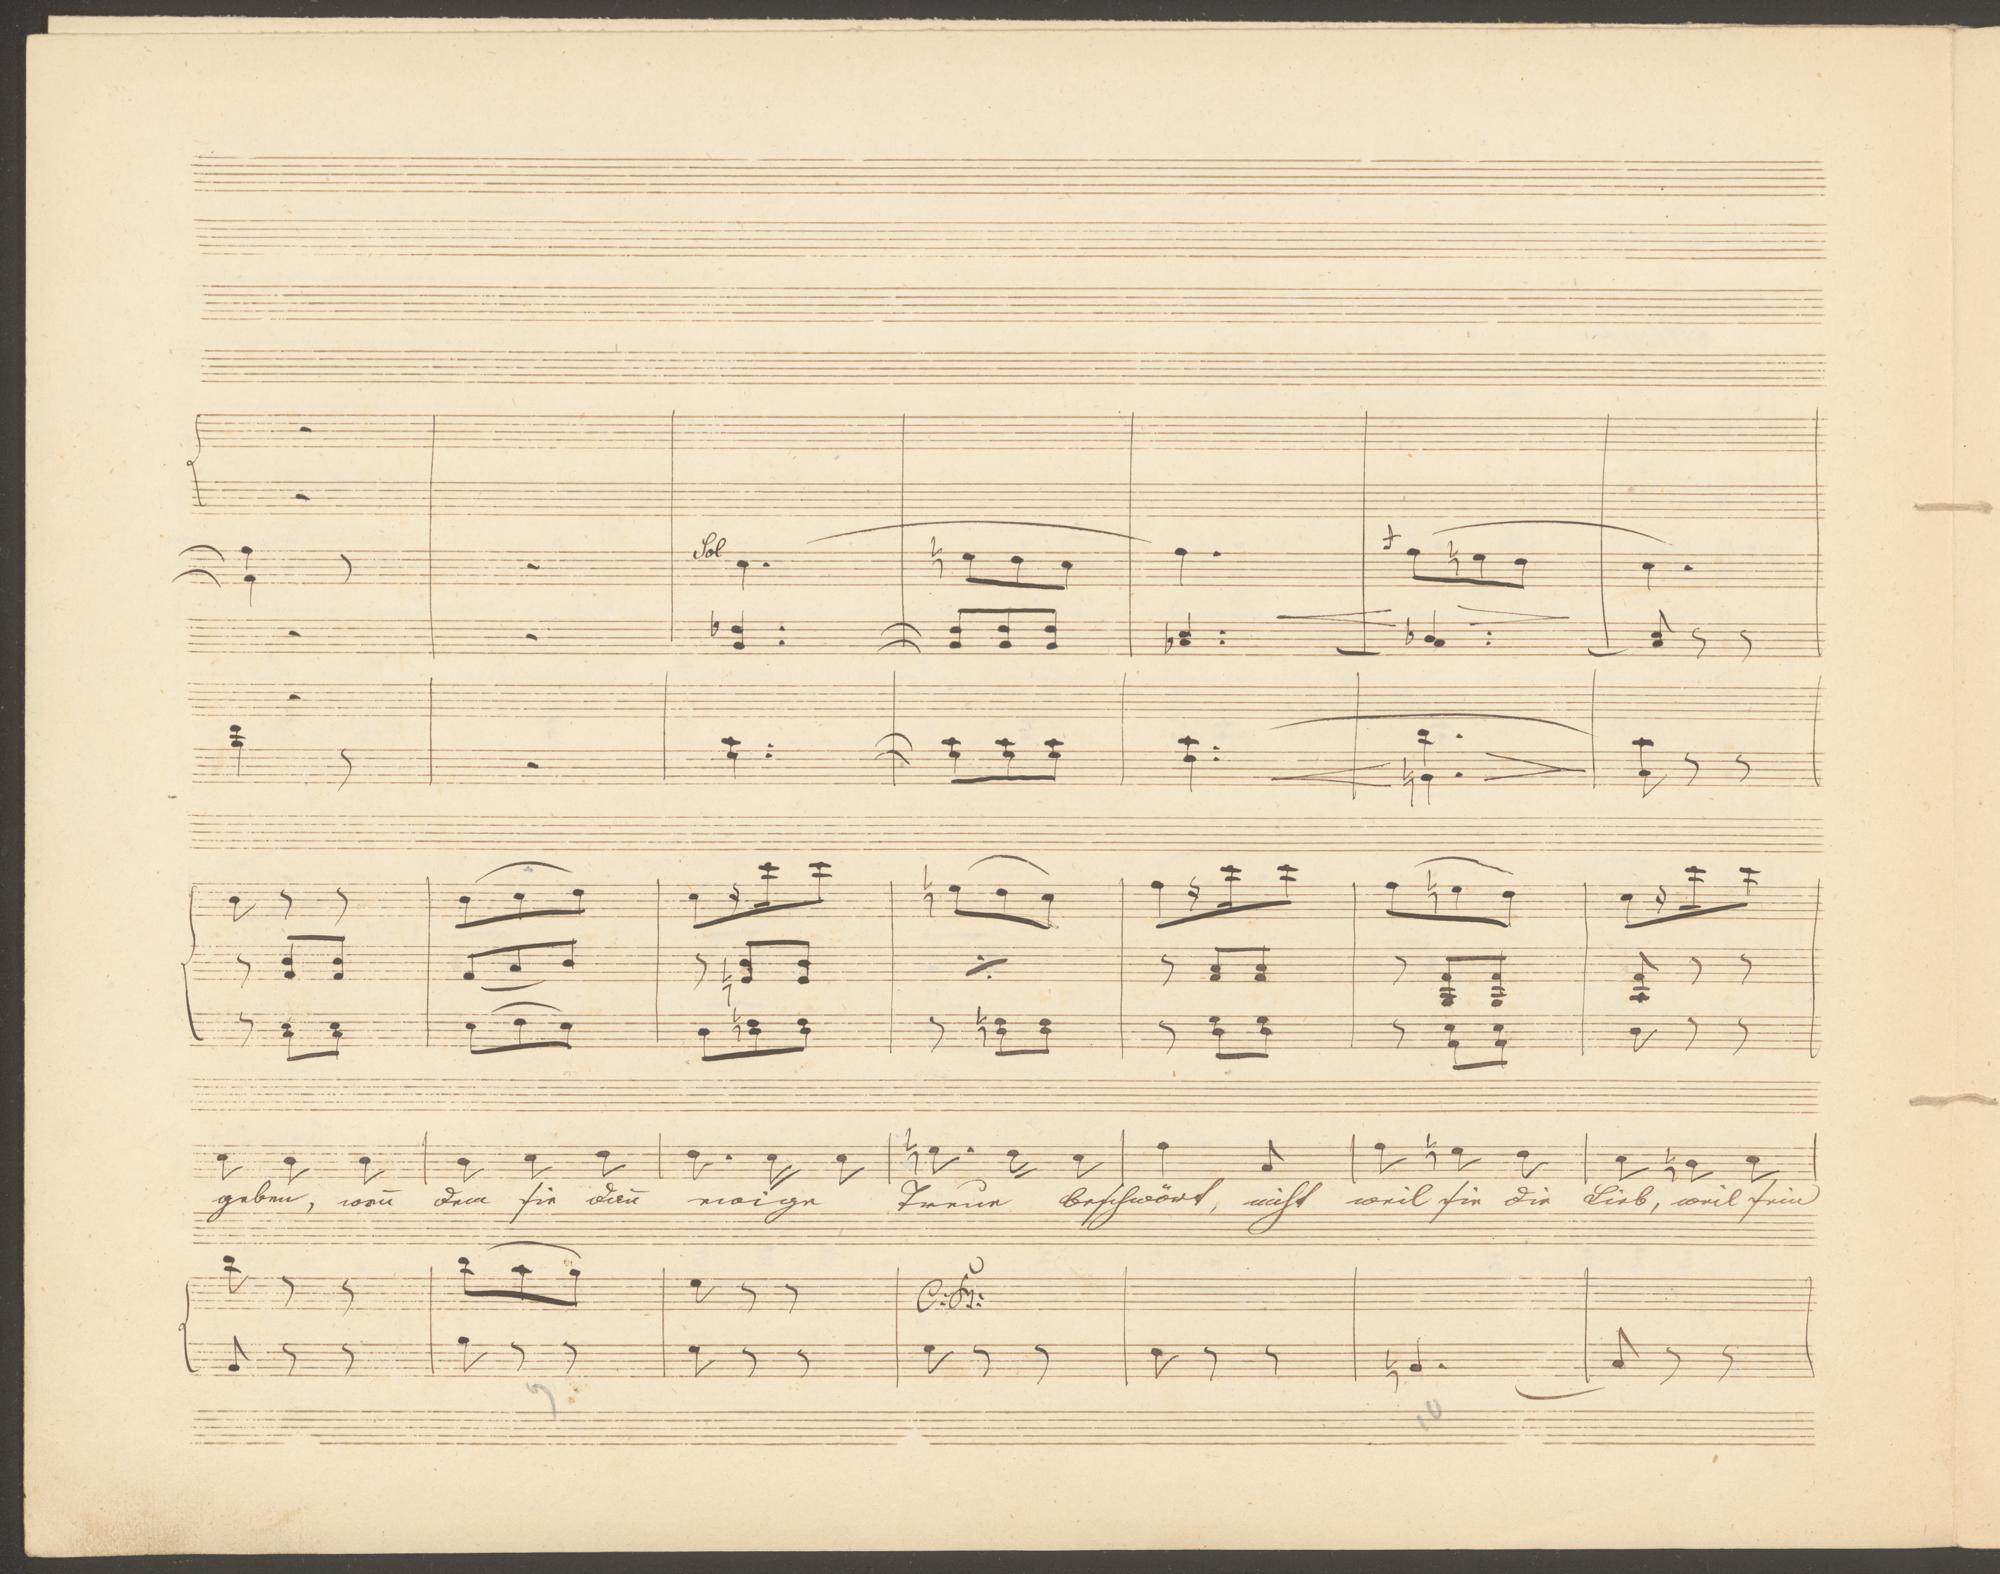 Sol
C: B:
geben, weñ dem sie dañ ewige Treue beschwört, nicht weil sie die Lieb, weil sein